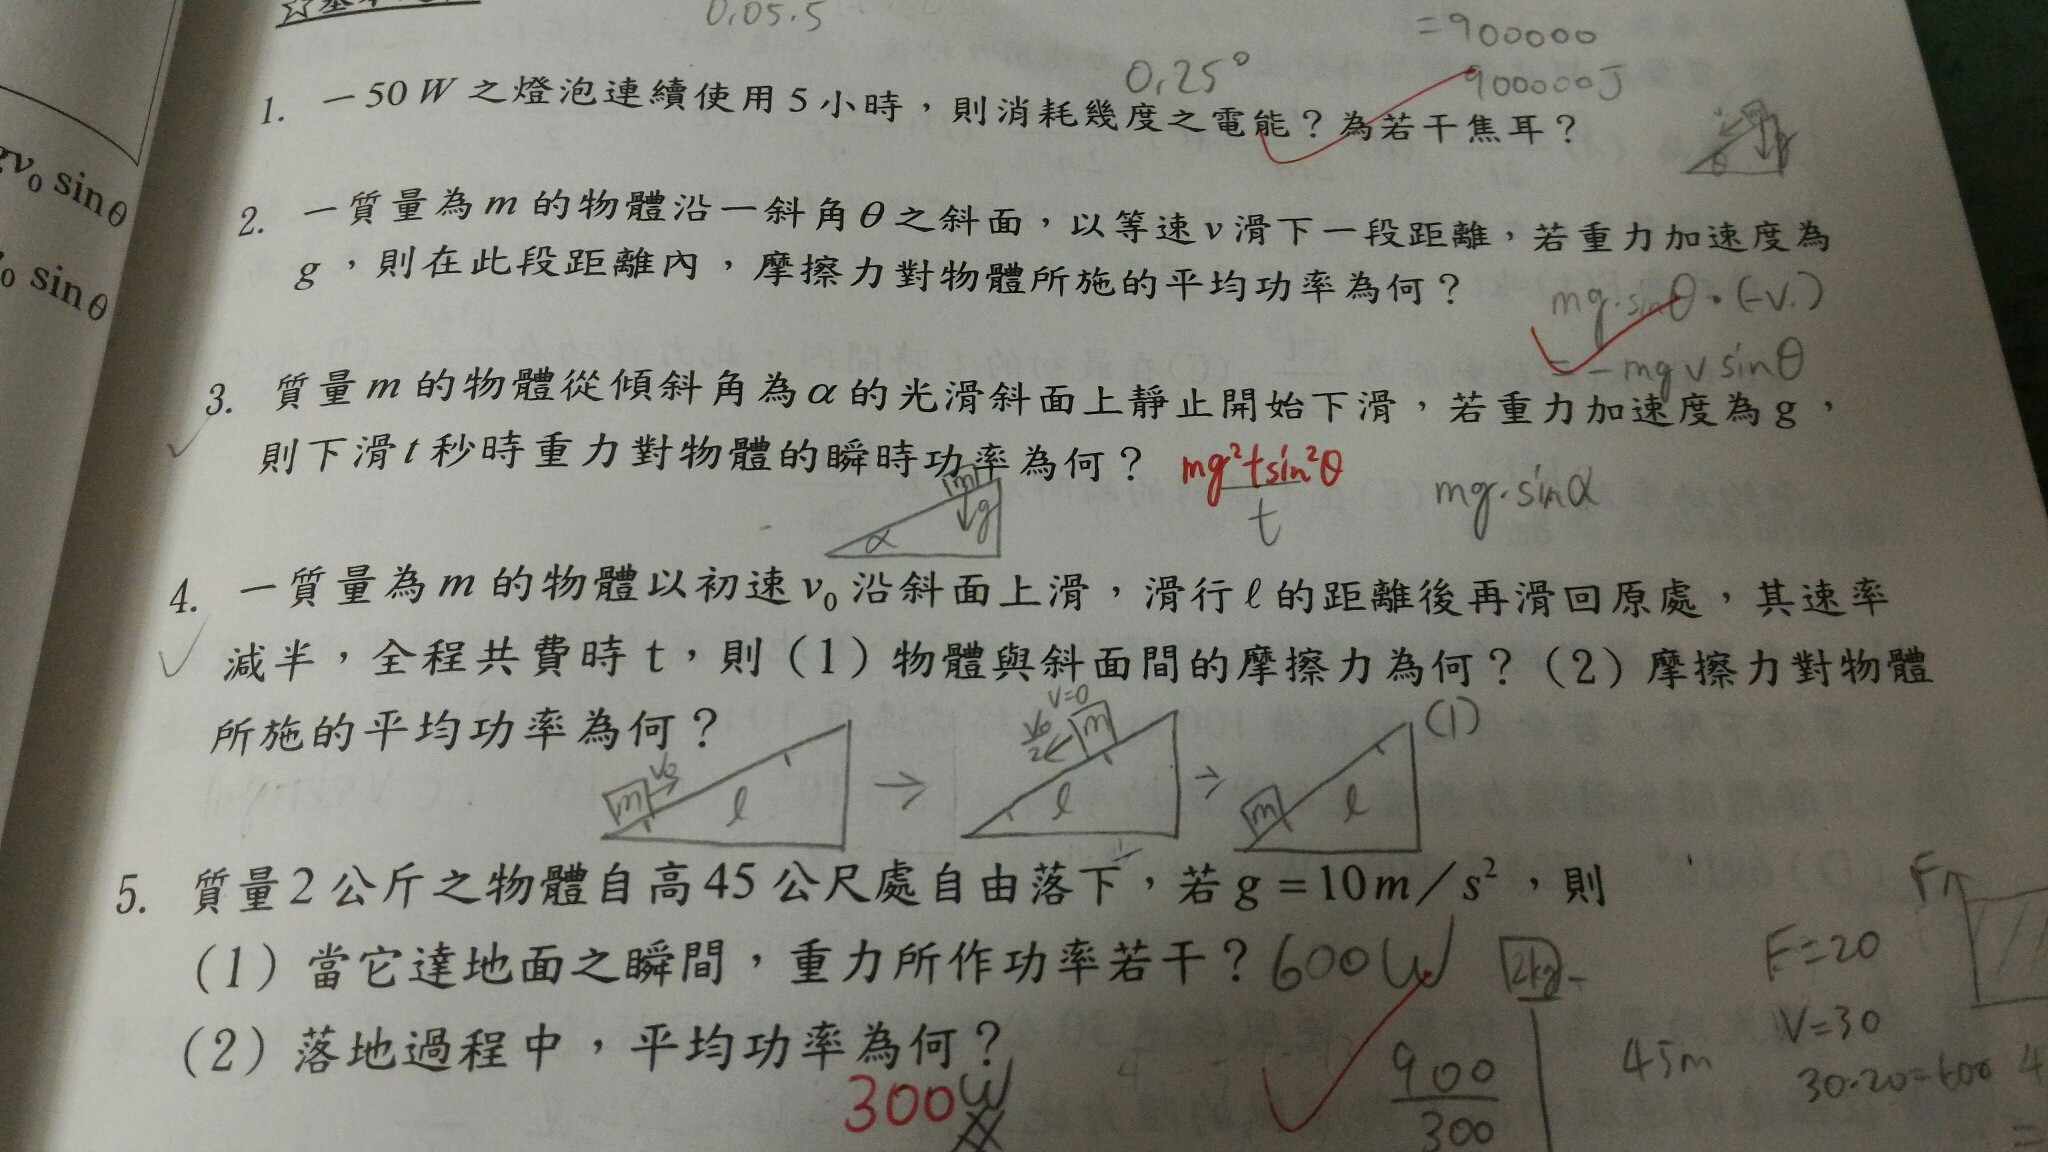 0.05.5
=900000
0.25°
900000J
1. 一50W之燈泡連續使用5小時，則消耗幾度之電能？為若干焦耳？
gv₀ sinθ
2. 一質量為m的物體沿一斜角θ之斜面，以等速v滑下一段距離，若重力加速度為
g，則在此段距離內，摩擦力對物體所施的平均功率為何？
mg·sinθ·(-v.)
= -mgv sinθ
₀ sinθ
3. 質量m的物體從傾斜角為α的光滑斜面上靜止開始下滑，若重力加速度為g，
則下滑t秒時重力對物體的瞬時功率為何？
mg²tsin²θ
t
mg·sinα
m
g
α
4. 一質量為m的物體以初速v₀沿斜面上滑，滑行ℓ的距離後再滑回原處，其速率
減半，全程共費時t，則（1）物體與斜面間的摩擦力為何？（2）摩擦力對物體
所施的平均功率為何？
m v₀ ℓ
V=0
V₀/2 m ℓ
m ℓ
(1)
5. 質量2公斤之物體自高45公尺處自由落下，若g＝10m／s²，則
（1）當它達地面之瞬間，重力所作功率若干？600W
2kg
F=20
F
V=30
（2）落地過程中，平均功率為何？
300W
900
300
45m
30·20=600